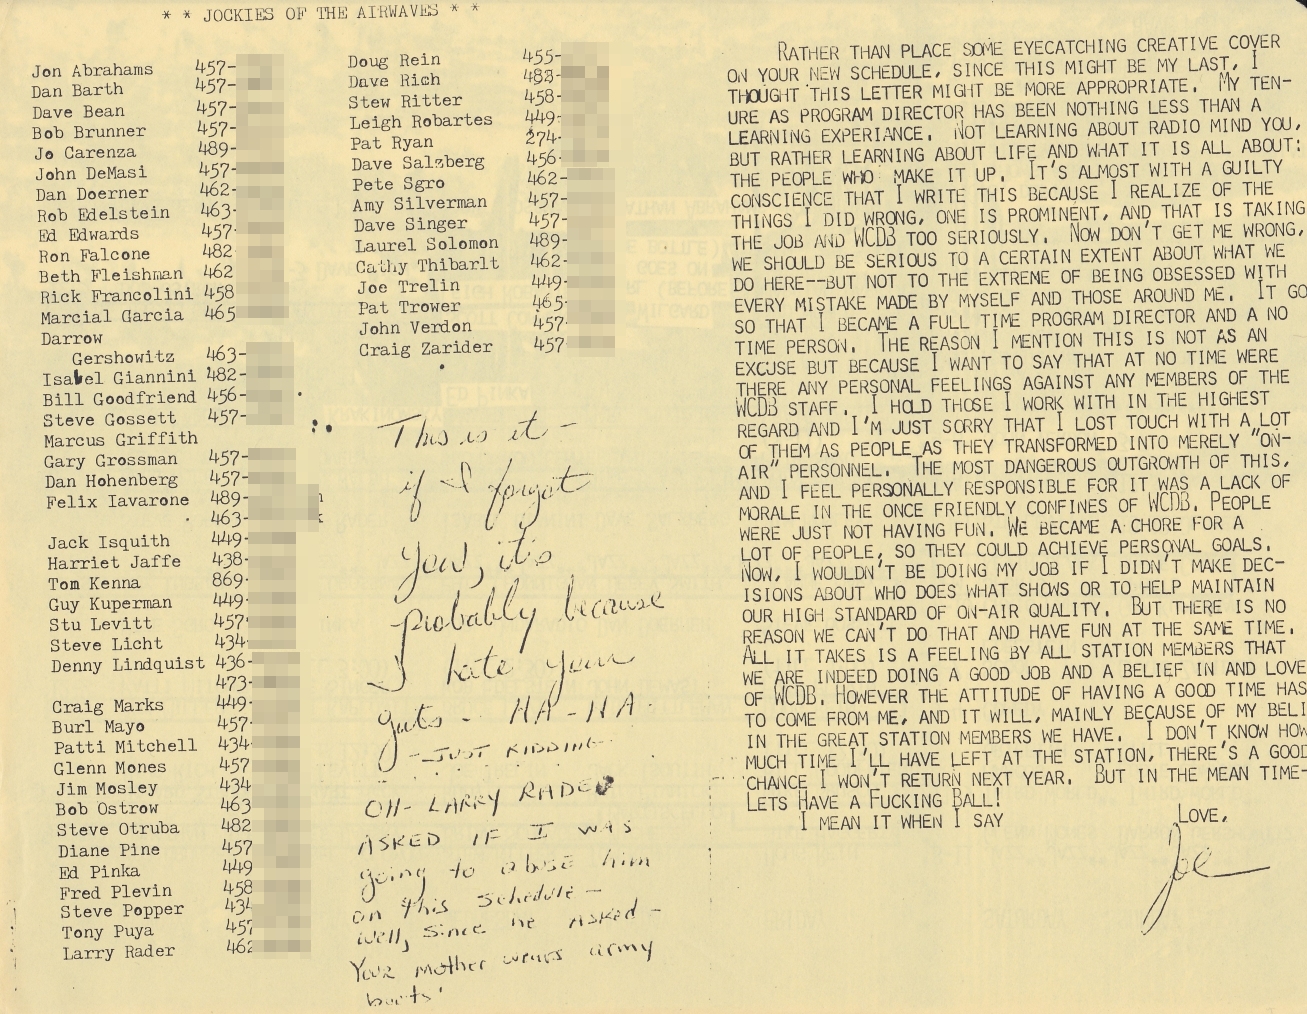 * * JOCKIES OF THE AIRWAVES * *
Jon Abrahams 457-
Dan Barth 457-
Dave Bean 457-
Bob Brunner 457-
Jo Carenza 489-
John DeMasi 457-
Dan Doerner 462-
Rob Edelstein 463-
Ed Edwards 457-
Ron Falcone 482-
Beth Fleishman 462
Rick Francolini 458
Marcial Garcia 465
Darrow
Gershowitz 463-
Isabel Giannini 482-
Bill Goodfriend 456-
Steve Gossett 457-
Marcus Griffith
Gary Grossman 457-
Dan Hohenberg 457-
Felix Iavarone 489-
463-
Jack Isquith 449-
Harriet Jaffe 438-
Tom Kenna 869-
Guy Kuperman 449-
Stu Levitt 457-
Steve Licht 434-
Denny Lindquist 436-
473-
Craig Marks 449-
Burl Mayo 457-
Patti Mitchell 434-
Glenn Mones 457
Jim Mosley 434
Bob Ostrow 463
Steve Otruba 482
Diane Pine 457
Ed Pinka 449
Fred Plevin 458
Steve Popper 434
Tony Puya 457
Larry Rader 462
Doug Rein 455-
Dave Rich 483-
Stew Ritter 458-
Leigh Robartes 449-
Pat Ryan 274-
Dave Salzberg 456-
Pete Sgro 462-
Amy Silverman 457-
Dave Singer 457-
Laurel Solomon 489-
Cathy Thibarlt 462-
Joe Trelin 449-
Pat Trower 465-
John Verdon 457-
Craig Zarider 457-
This is it -
if I forget
you, it's
probably because
I hate your
guts - HA-HA
-JUST KIDDING-
OH- LARRY RADER
ASKED IF I WAS
going to abuse him
on this schedule -
well, since he asked -
Your mother wears army
boots!
RATHER THAN PLACE SOME EYECATCHING CREATIVE COVER
ON YOUR NEW SCHEDULE, SINCE THIS MIGHT BE MY LAST, I
THOUGHT THIS LETTER MIGHT BE MORE APPROPRIATE. MY TEN-
URE AS PROGRAM DIRECTOR HAS BEEN NOTHING LESS THAN A
LEARNING EXPERIANCE. NOT LEARNING ABOUT RADIO MIND YOU,
BUT RATHER LEARNING ABOUT LIFE AND WHAT IT IS ALL ABOUT:
THE PEOPLE WHO MAKE IT UP. IT'S ALMOST WITH A GUILTY
CONSCIENCE THAT I WRITE THIS BECAUSE I REALIZE OF THE
THINGS I DID WRONG, ONE IS PROMINENT, AND THAT IS TAKING
THE JOB AND WCDB TOO SERIOUSLY. NOW DON'T GET ME WRONG,
WE SHOULD BE SERIOUS TO A CERTAIN EXTENT ABOUT WHAT WE
DO HERE--BUT NOT TO THE EXTREME OF BEING OBSESSED WITH
EVERY MISTAKE MADE BY MYSELF AND THOSE AROUND ME. IT GO
SO THAT I BECAME A FULL TIME PROGRAM DIRECTOR AND A NO
TIME PERSON. THE REASON I MENTION THIS IS NOT AS AN
EXCUSE BUT BECAUSE I WANT TO SAY THAT AT NO TIME WERE
THERE ANY PERSONAL FEELINGS AGAINST ANY MEMBERS OF THE
WCDB STAFF. I HOLD THOSE I WORK WITH IN THE HIGHEST
REGARD AND I'M JUST SORRY THAT I LOST TOUCH WITH A LOT
OF THEM AS PEOPLE AS THEY TRANSFORMED INTO MERELY "ON-
AIR" PERSONNEL. THE MOST DANGEROUS OUTGROWTH OF THIS,
AND I FEEL PERSONALLY RESPONSIBLE FOR IT WAS A LACK OF
MORALE IN THE ONCE FRIENDLY CONFINES OF WCDB. PEOPLE
WERE JUST NOT HAVING FUN. WE BECAME A CHORE FOR A
LOT OF PEOPLE, SO THEY COULD ACHIEVE PERSONAL GOALS.
NOW, I WOULDN'T BE DOING MY JOB IF I DIDN'T MAKE DEC-
ISIONS ABOUT WHO DOES WHAT SHOWS OR TO HELP MAINTAIN
OUR HIGH STANDARD OF ON-AIR QUALITY. BUT THERE IS NO
REASON WE CAN'T DO THAT AND HAVE FUN AT THE SAME TIME.
ALL IT TAKES IS A FEELING BY ALL STATION MEMBERS THAT
WE ARE INDEED DOING A GOOD JOB AND A BELIEF IN AND LOVE
OF WCDB. HOWEVER THE ATTITUDE OF HAVING A GOOD TIME HAS
TO COME FROM ME, AND IT WILL, MAINLY BECAUSE OF MY BELI
IN THE GREAT STATION MEMBERS WE HAVE. I DON'T KNOW HOW
MUCH TIME I'LL HAVE LEFT AT THE STATION, THERE'S A GOOD
CHANCE I WON'T RETURN NEXT YEAR. BUT IN THE MEAN TIME-
LETS HAVE A FUCKING BALL!
I MEAN IT WHEN I SAY
LOVE,
Joe